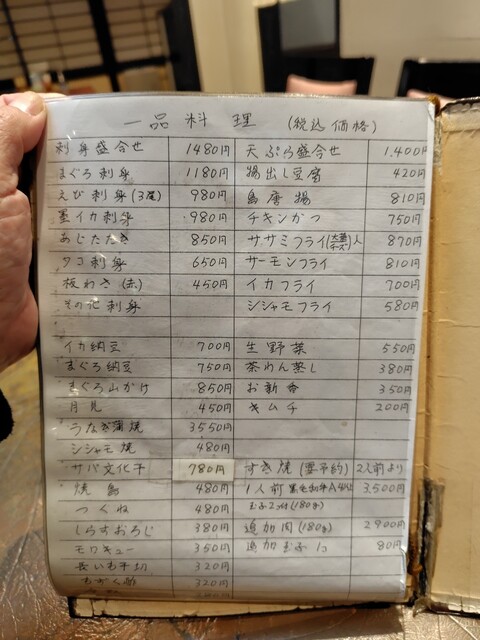 一品料理 (税込価格)
刺身盛合せ 1480円 天ぷら盛合せ 1,400円
まぐろ刺身 1180円 揚出し豆腐 420円
えび刺身(3尾) 980円 鳥唐揚 810円
墨イカ刺身 980円 チキンかつ 750円
あじたたき 850円 ササミフライ(大葉チーズ)入 870円
タコ刺身 650円 サーモンフライ 810円
板わさ(赤) 450円 イカフライ 700円
その他刺身 シシャモフライ 580円
イカ納豆 700円 生野菜 550円
まぐろ納豆 750円 茶わん蒸し 380円
まぐろ山かけ 850円 お新香 350円
月見 450円 キムチ 200円
うなぎ蒲焼 3550円
シシャモ焼 480円
サバ文化干 780円 すき焼(要予約) 2人前より
焼鳥 480円 1人前 黒毛和牛A4以上 3,500円
つくね 480円 玉子2ヶ付(180g)
しらすおろし 380円 追加肉(180g) 2900円
モロキュー 350円 追加玉子1コ 80円
長いも千切 320円
もずく酢 320円